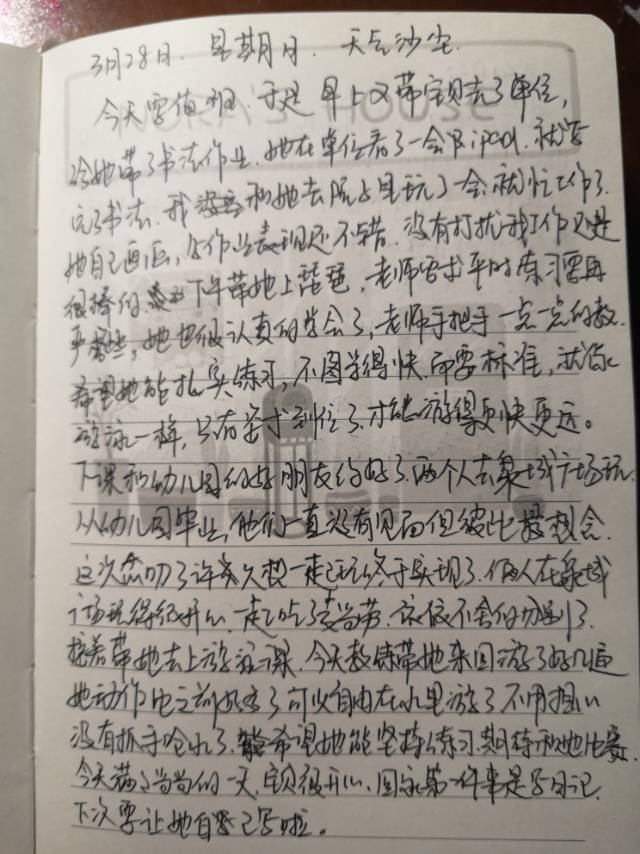 3月28日. 星期日. 天气沙尘.
今天需值班. 于是早上又带宝贝去了单位,
给她带了书法作业. 她在单位看了一会儿ipad. 就写
完了书法. 我和她去院子里玩了一会. 就忙工作了.
她自己画画, 写作业表现还不错. 没有打扰我工作还是
很棒的. 下午带她上琵琶, 老师要求平时练习要再
严格些, 她也很认真的学会了, 老师手把手一点一点的教.
希望她能扎实练习, 不图学得快. 而要标准, 就像
游泳一样, 只有要求到位了. 才能游得更快更远。
下课和幼儿园的好朋友约好了. 两个人去象域广场玩.
从幼儿园毕业, 他们一直没有见面但彼此很想念.
这次念叨了许久想一起玩终于实现了. 俩人在象域
广场玩得很开心. 一起吃了麦当劳. 依依不舍的分别了.
接着带她去上游泳课. 今天教练带她来回游了好几遍
她动作比之前好多了可以自由在水里游了. 不用担心
没有抓手呛水了. 希望她能坚持练习. 期待和她比赛.
今天满满当当的一天. 宝贝很开心. 回家第一件事是写日记.
下次要让她自己写啦。